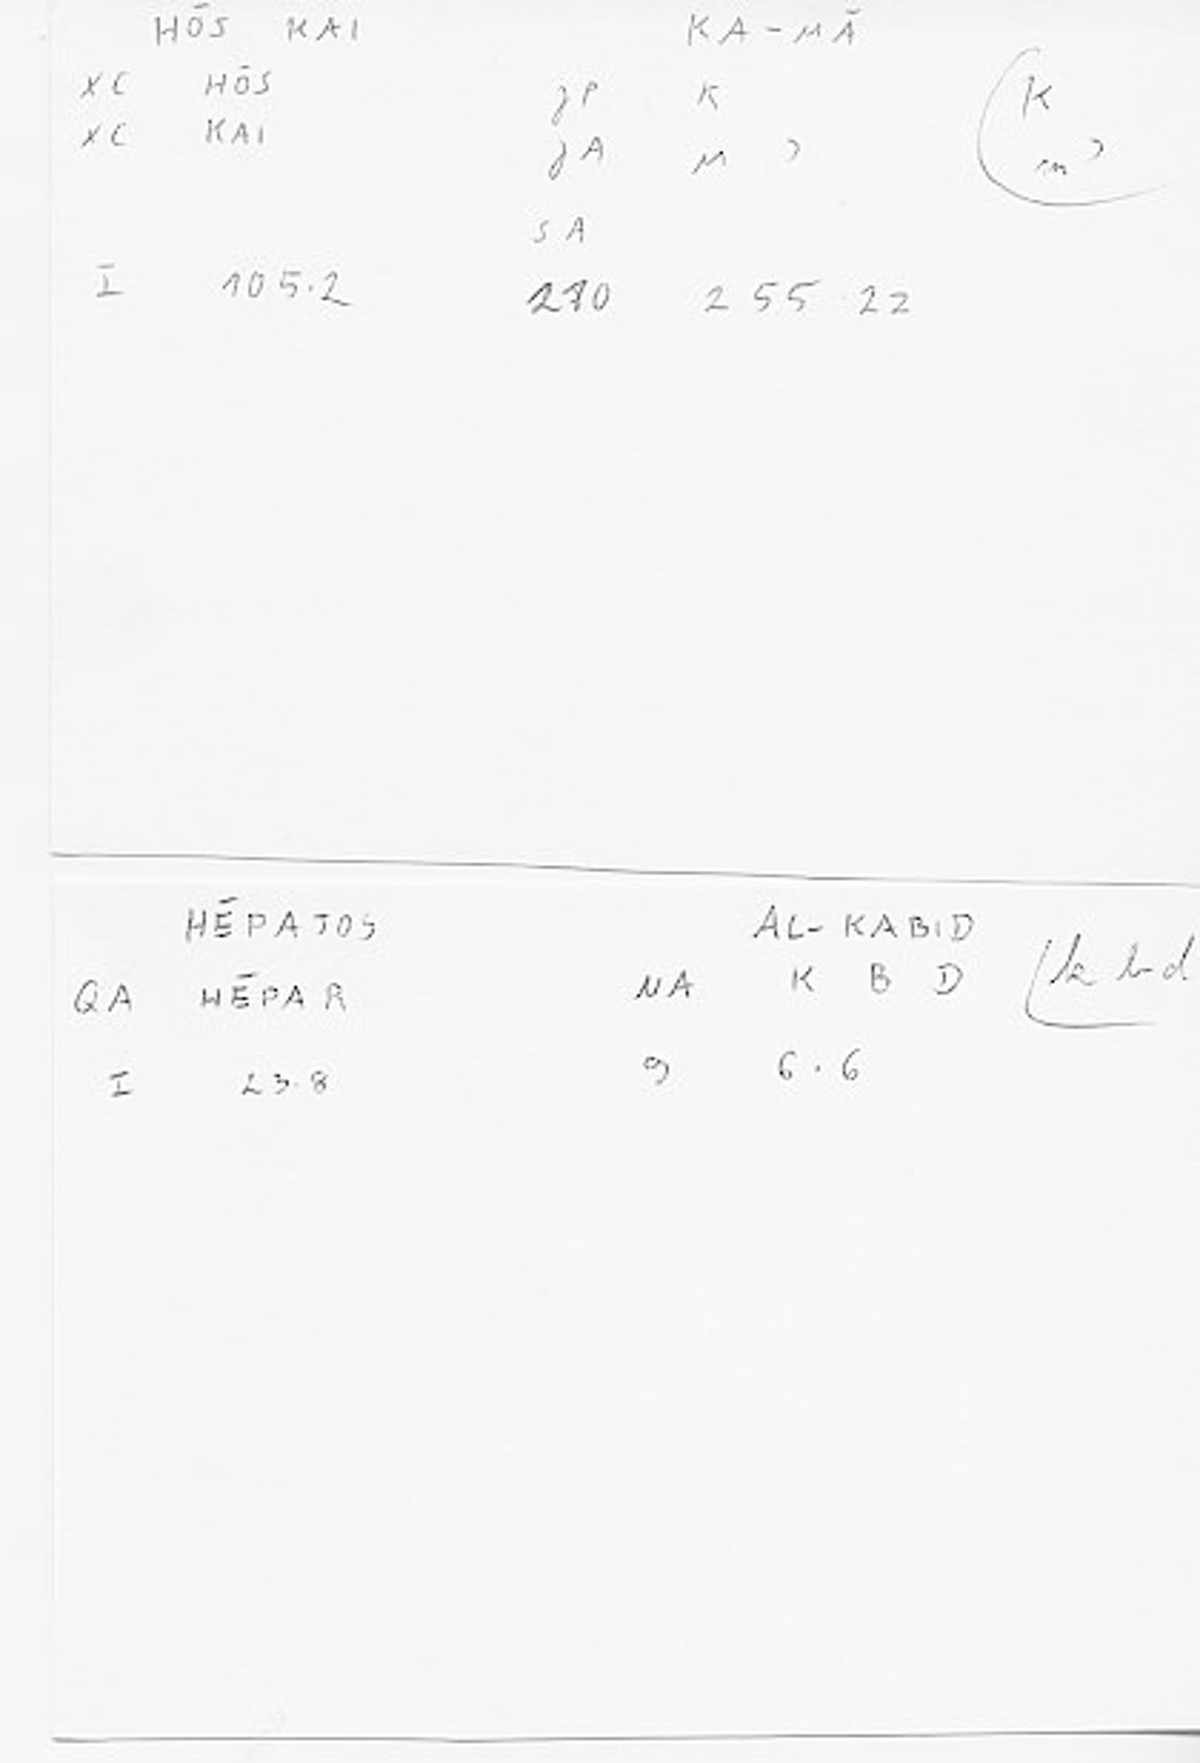 HŌS KAI KA-MĀ
XC HŌS JP K (K
XC KAI JA M ʾ m ʾ
SA
I 105.2 210 255 22
HĒPATOS AL-KABID
QA HĒPAR NA K B D (k b d
I 23.8 9 6.6